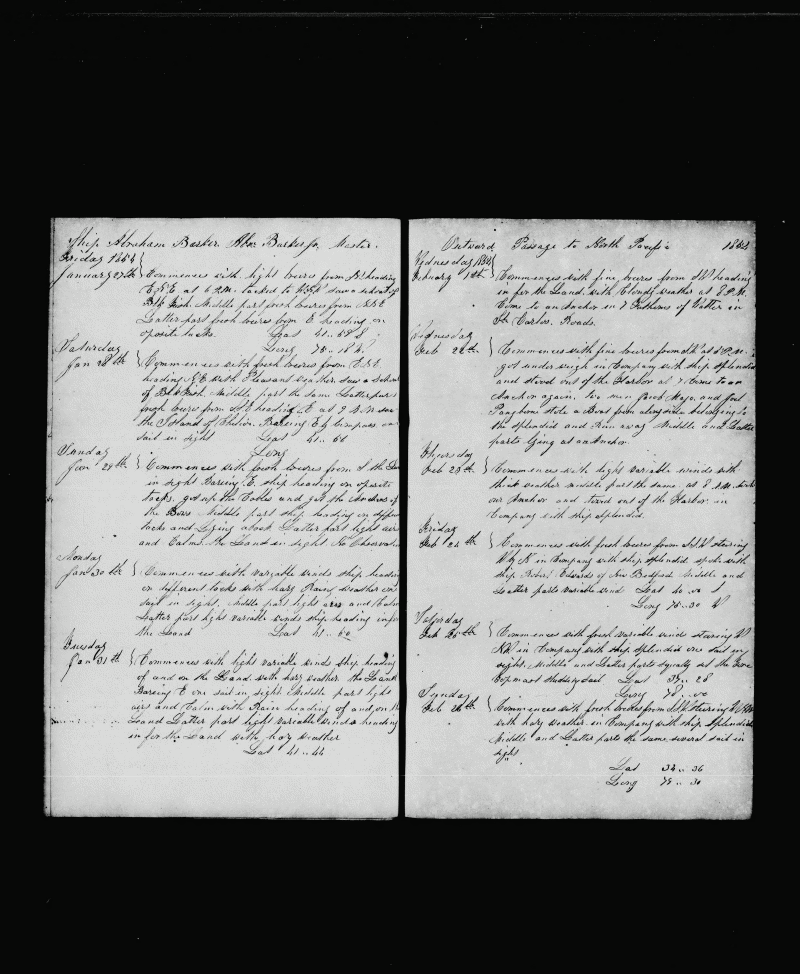 Ship Abraham Barker Abm Barker Jr Master.
Friday 1854
January 27th Commences with light breezes from N heading
E.N.E. at 6 P.M. tacked to saw a school of
Blk Fish. Middle part fresh breezes from
Latter part fresh breezes from E heading on
oposite tacks. Lat 41..58 S
Long 75..18 W
Saturday
Jan 28th Commences with fresh breezes from E.N.E
heading N.E with Pleasant weather. saw a School
of Blk Fish. Middle part the same Latter part
fresh breezes from heading E at 9 A.M. saw
the Island of Chiloe. Bearing E by Compass one
sail in sight Lat 41..
Long
Sunday
Jan 29th Commences with fresh breezes from S the Land
in sight Bearing E. ship heading on oposite
tacks. got up the Cables and got the Anchors of
the Bows Middle part ship heading on different
tacks and Lying aback Latter part light airs
and Calms. the Land in sight No Observation
Monday
Jan 30th Commences with variable winds ship heading
on different tacks with hazy Rainy weather one
sail in sight. Middle part light airs and Calm
Latter part light variable winds ship heading in for
the Land Lat 41..50
Tuesday
Jan 31th Commences with light variable winds ship heading
of and on the Land with hazy weather. the Land
Bearing E one sail in sight Middle part light
airs and Calm with Rain heading of and on the
Land Latter part light variable winds heading
in for the Land with hazy weather
Lat 41..44
Outward Passage to North Pacific 1854
Wednesday 1854
February 1st Commences with fine breezes from SW heading
in for the Land. with Cloudy weather at 8 P.M.
Come to an Anchor in 7 Fathoms of Watter in
St Carlos. Roads.
Wednesday
Feb 22th Commences with fine breezes from at P.M.
got under weigh in Company with ship Splendid
and stood out of the Harbor at 7 Come to an
Anchor again. two men Jacob Mayo. and Joel
Pangborn stole a Boat from alongside belonging to
the Splendid and Run away Middle and Latter
parts Lying at an Anchor.
Thursday
Feb 23th Commences with light variable winds with
thick weather middle part the same. at 8 A.M. took
our Anchor and stood out of the Harbor in
Company with ship Splendid.
Friday
Feb 24th Commences with fresh breezes from S.S.W steering
W by N in Company with ship Splendid spoke with
ship Robert Edwards of New Bedford. Middle and
Latter parts variable wind Lat 40..00 S
Long 75..30 W
Saturday
Feb 25th Commences with fresh variable winds steering W
NW in Company with ship Splendid one sail in
sight. Middle and Latter parts squally set the Fore
Topmast studdingsail Lat 37..28
Long 78..00
Sunday
Feb 26th Commences with fresh breezes from S.S.W steering
with hazy weather in Company with ship Splendid
Middle and Latter parts the same several sail in
sight
Lat 34..36
Long 79..30